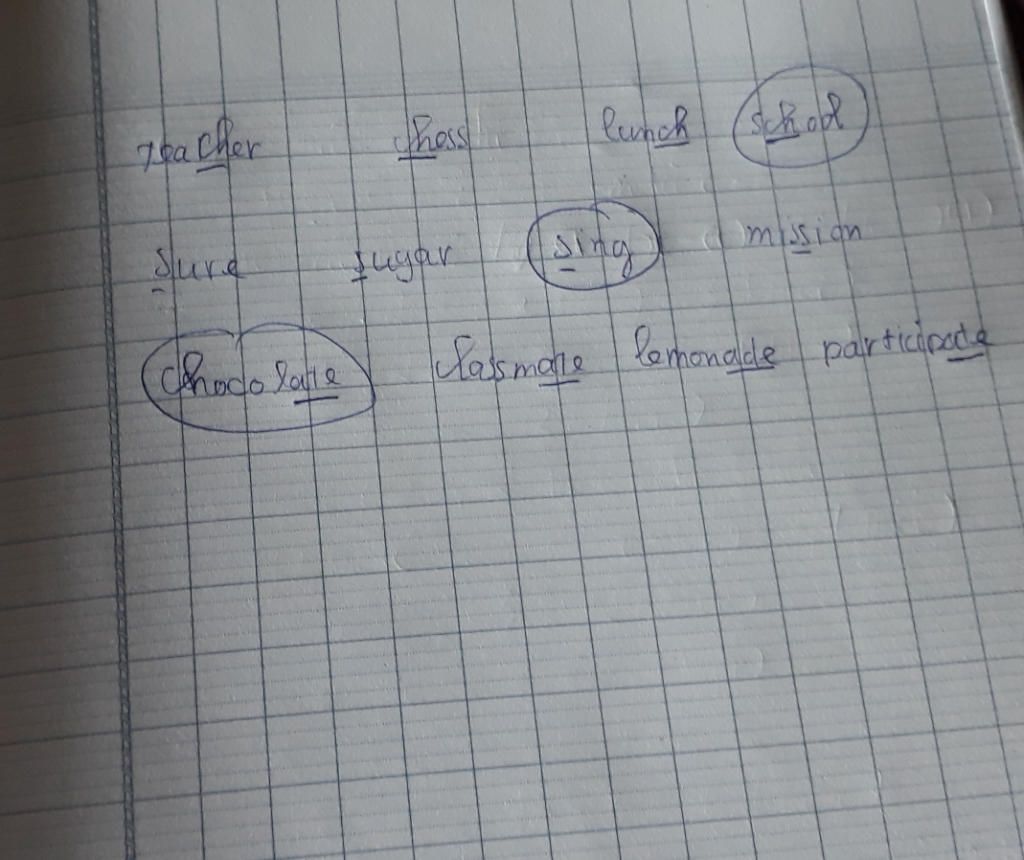 teacher chess lunch school
sure sugar sing mission
chocolate classmate lemonade participate